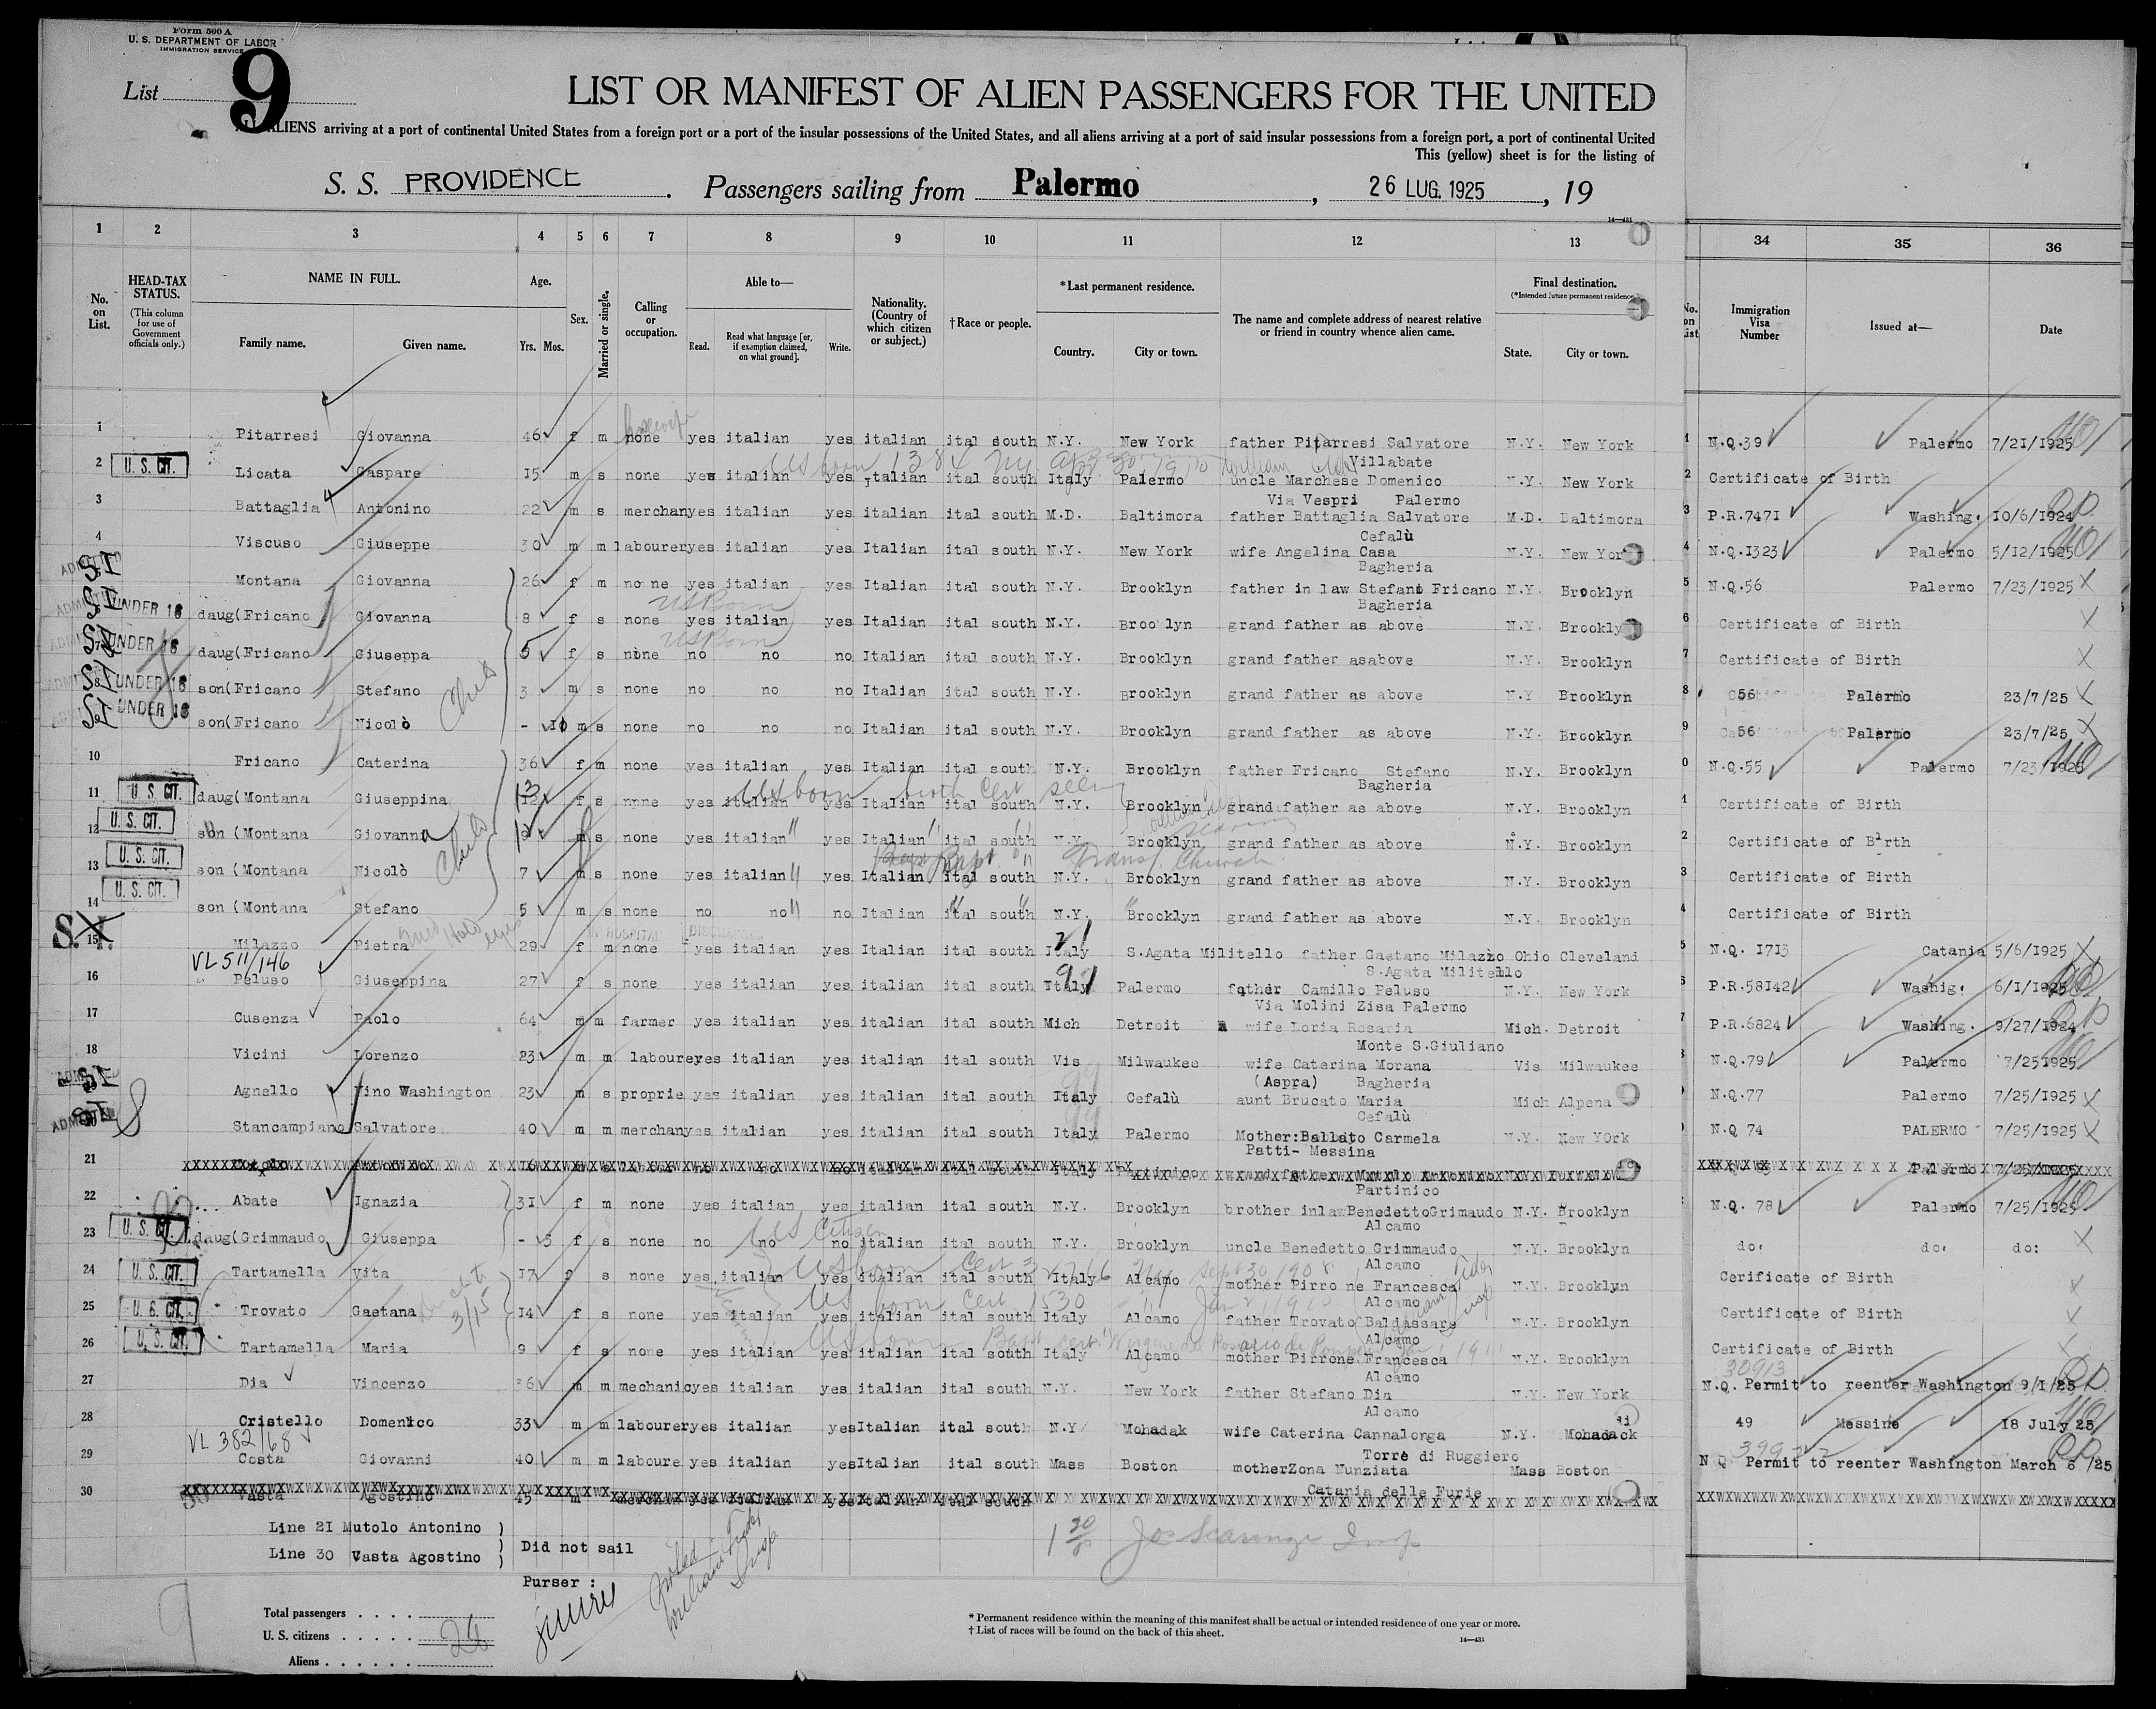 Form 500 A
U. S. DEPARTMENT OF LABOR
IMMIGRATION SERVICE
List 9
LIST OR MANIFEST OF ALIEN PASSENGERS FOR THE UNITED
ALL ALIENS arriving at a port of continental United States from a foreign port or a port of the insular possessions of the United States, and all aliens arriving at a port of said insular possessions from a foreign port, a port of continental United
This (yellow) sheet is for the listing of
S. S. PROVIDENCE . Passengers sailing from Palermo , 26 LUG. 1925 , 19
14—431
1 2 3 4 5 6 7 8 9 10 11 12 13 34 35 36
No. on List. HEAD-TAX STATUS. (This column for use of Government officials only.) NAME IN FULL. Family name. Given name. Age. Yrs. Mos. Sex. Married or single. Calling or occupation. Able to— Read. Read what language [or, if exemption claimed, on what ground]. Write. Nationality. (Country of which citizen or subject.) †Race or people. *Last permanent residence. Country. City or town. The name and complete address of nearest relative or friend in country whence alien came. Final destination. (*Intended future permanent residence.) State. City or town. No. on List Immigration Visa Number Issued at— Date
1 Pitarresi Giovanna 46 f m none housewife yes italian yes italian ital south N.Y. New York father Pitarresi Salvatore N.Y. New York 1 N.Q.39 Palermo 7/21/1925
Villabate
2 U. S. CIT. Licata Gaspare 15 m s none yes italian yes Italian ital south Italy Palermo uncle Marchese Domenico N.Y. New York 2 Certificate of Birth
Via Vespri Palermo
3 Battaglia Antonino 22 m s merchan yes italian yes italian ital south M.D. Baltimora father Battaglia Salvatore M.D. Baltimora 3 P.R.7471 Washing. 10/6/1924
Cefalù
4 Viscuso Giuseppe 30 m m labourer yes italian yes Italian ital south N.Y. New York wife Angelina Casa N.Y. New York 4 N.Q.1323 Palermo 5/12/1925
Bagheria
SI Montana Giovanna 26 f m no ne yes italian yes Italian ital south N.Y. Brooklyn father in law Stefano Fricano N.Y. Brooklyn 5 N.Q.56 Palermo 7/23/1925
US Born Bagheria
SI UNDER 16 daug(Fricano Giovanna 8 f s none yes italian yes Italian ital south N.Y. Broo lyn grand father as above N.Y. Brookly 6 Certificate of Birth
US Born
SI UNDER 16 daug(Fricano Giuseppa 5 f s none no no no Italian ital south N.Y. Brooklyn grand father asabove N.Y. Brooklyn 7 Certificate of Birth
SI UNDER 16 son(Fricano Stefano 3 m s none no no no Italian ital south N.Y. Brooklyn grand father as above N.Y Brooklyn 8 56 Palermo 23/7/25
SI UNDER 16 son(Fricano Nicolò - 10 m s none no no no Italian ital south N.Y. Brooklyn grand father as above N.Y. Brooklyn 9 56 Palermo 23/7/25
10 Fricano Caterina 36 f m none yes italian yes Italian ital south N.Y. Brooklyn father Fricano Stefano N.Y. Brooklyn 0 N.Q.55 Palermo 7/23/1925
US born birth Cert seen Bagheria
11 U. S. CIT. daug(Montana Giuseppina 12 f s none yes italian yes Italian ital south N.Y. Brooklyn grand father as above N.Y. Brooklyn 1 Certificate of Birth
12 U. S. CIT. son (Montana Giovanna 9 m s none yes italian " yes Italian " ital south N.Y. Brooklyn grand father as above N.Y. Brooklyn 2 Certificate of Birth
Bapt. " Trans. Church
13 U. S. CIT. son (Montana Nicolò 7 m s none yes italian " yes Italian ital south N.Y. Brooklyn grand father as above N.Y. Brooklyn 3 Certificate of Birth
14 U. S. CIT. son (Montana Stefano 5 m s none no no " no Italian ital south N.Y. Brooklyn grand father as above N.Y. Brooklyn 4 Certificate of Birth
IN HOSPITAL DISCHARGED
15 S.I. Milazzo Pietra 29 f m none yes italian yes Italian ital south Italy S.Agata Militello father Gaetano Milazzo Ohio Cleveland 5 N.Q. 1713 Catania 5/6/1925
VL 511/146 S.Agata Militello
16 Peluso Giuseppina 27 f s none yes italian yes italian ital south Italy Palermo father Camillo Peluso N.Y. New York 6 P.R.58142 Washig. 6/1/1925
Via Molini Zisa Palermo
17 Cusenza Paolo 64 m m farmer yes italian yes italian ital south Mich Detroit wife Loria Rosaria Mich. Detroit 7 P.R.6824 Washing. 9/27/1924
Monte S.Giuliano
18 Vicini Lorenzo 23 m m labourer yes italian yes italian ital south Vis Milwaukee wife Caterina Morana Vis Milwaukee N.Q.79 Palermo 7/251925
(Aspra) Bagheria
SI Agnello Vino Washington 23 m s proprie yes italian yes italian ital south Italy Cefalù aunt Brucato Maria Mich Alpena N.Q.77 Palermo 7/25/1925
Cefalù
SI Stancampiano Salvatore 40 m m merchan yes italian yes italian ital south Italy Palermo Mother:Ballato Carmela N.Y. New YOrk N.Q 74 PALERMO 7/25/1925
Patti- Messina
21 Palermo 7/25/1925
Partinico
22 Abate Ignazia 31 f m none yes italian yes italian ital south N.Y. Brooklyn brother inlawBenedettoGrimaudo N.Y. Brooklyn N.Q. 78 Palermo 7/25/1925
US Citizen Alcamo
23 U. S. CIT. daug(Grimmaudo Giuseppa - 3 f s none no no no italian ital south N.Y. Brooklyn uncle Benedetto Grimmaudo N.Y. Brooklyn do. do. do:
Alcamo
24 U. S. CIT. Tartamella Vita 17 f s none yes italian yes italian ital south Italy Alcamo mother Pirro ne Francesca N.Y. Brooklyn Cerificate of Birth
US born Cert 1530 Alcamo
25 U. S. CIT. Trovato Gaetana 14 f s none yes italian yes italian ital south Italy Alcamo father Trovato Baldassare N.Y. Brooklyn Certificate of Birth
Alcamo
26 U. S. CIT. Tartamella Maria 9 f s none yes italian yes italian ital south Italy Alcamo mother Pirrone Francesca N.Y. Brooklyn Certificate of Birth
Alcamo 30913
27 Dia Vincenzo 36 m m mechanic yes italian yes italian ital south N.Y. New York father Stefano Dia N.Y. New York N.Q. Permit to reenter Washington 9/1/25
Alcamo
28 Cristello Domenico 33 m m labourer yes italian yes Italian ital south N.Y Mohadak wife Caterina Cannalonga N.Y. Mohadack 49 Messina 18 July 25
VL 382/68 Torre di Ruggiero
29 Costa Giovanni 40 m m laboure yes italian yes Italian ital south Mass Boston motherZona Nunziata Mass Boston N Q Permit to reenter Washington March 6 /25
Catania delle Furie
30 Vasta Agostino 45 m merchan yes italian yes italian ital south
Line 21 Mutolo Antonino )
Line 30 Vasta Agostino ) Did not sail
Jos Scaringe Insp
Purser :
Total passengers . . . .
U. S. citizens . . . . . 26
Aliens . . . . . .
9
* Permanent residence within the meaning of this manifest shall be actual or intended residence of one year or more.
† List of races will be found on the back of this sheet.
14—431